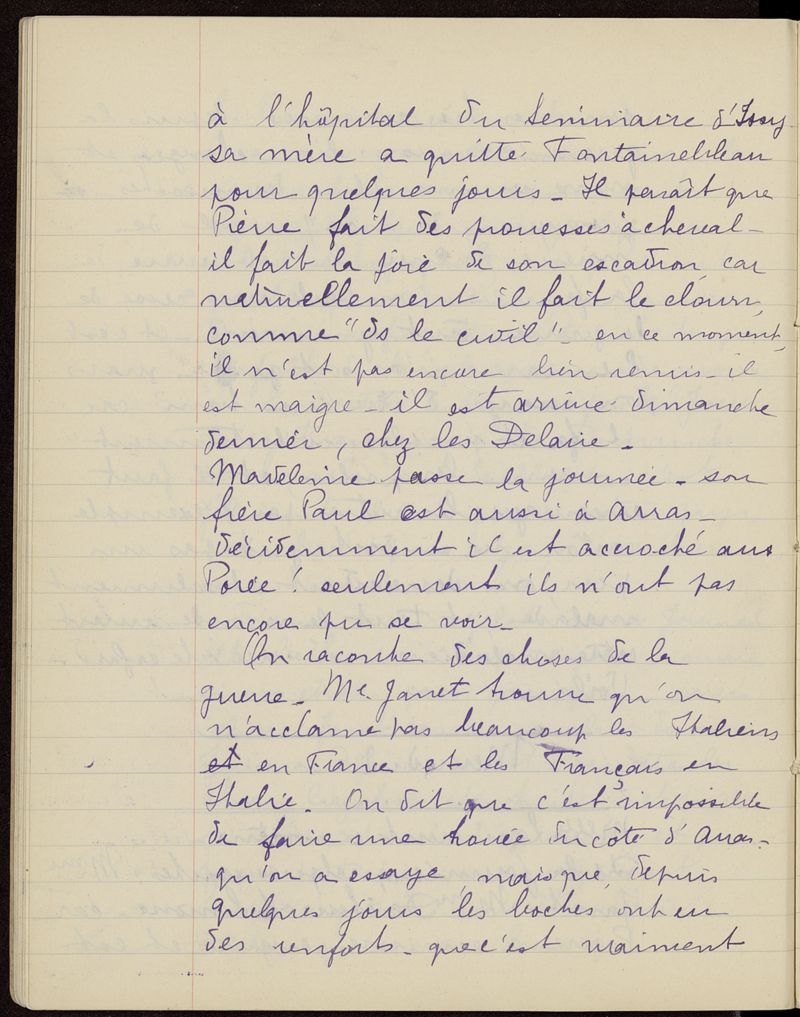 à l'hôpital du Séminaire d'Issy
sa mère a quitté Fontainebleau
pour quelques jours - Il paraît que
Pierre fait des prouesses à cheval -
il fait la joie de son escadron, car
naturellement il fait le clown,
comme "ds le civil" - en ce moment,
il n'est pas encore bien remis - il
est maigre - il est arrivé dimanche
dernier, chez les Delarie -
Madeleine passe la journée - son
frère Paul est aussi à Arras -
décidemment il est accroché aux
Porée ! seulement ils n'ont pas
encore pu se voir -
On raconte des choses de la
guerre - Me Janet trouve qu'on
n'acclame pas beaucoup les Italiens
et en France et les Français en
Italie. On dit que c'est impossible
de faire une trouée du côté d'Arras -
qu'on a essayé, mais que, depuis
quelques jours les boches ont eu
des renforts - que c'est vraiment